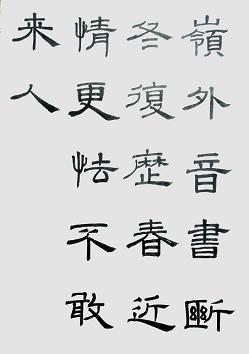 嶺外音書斷
冬復歴春近
情更怯不敢
来人